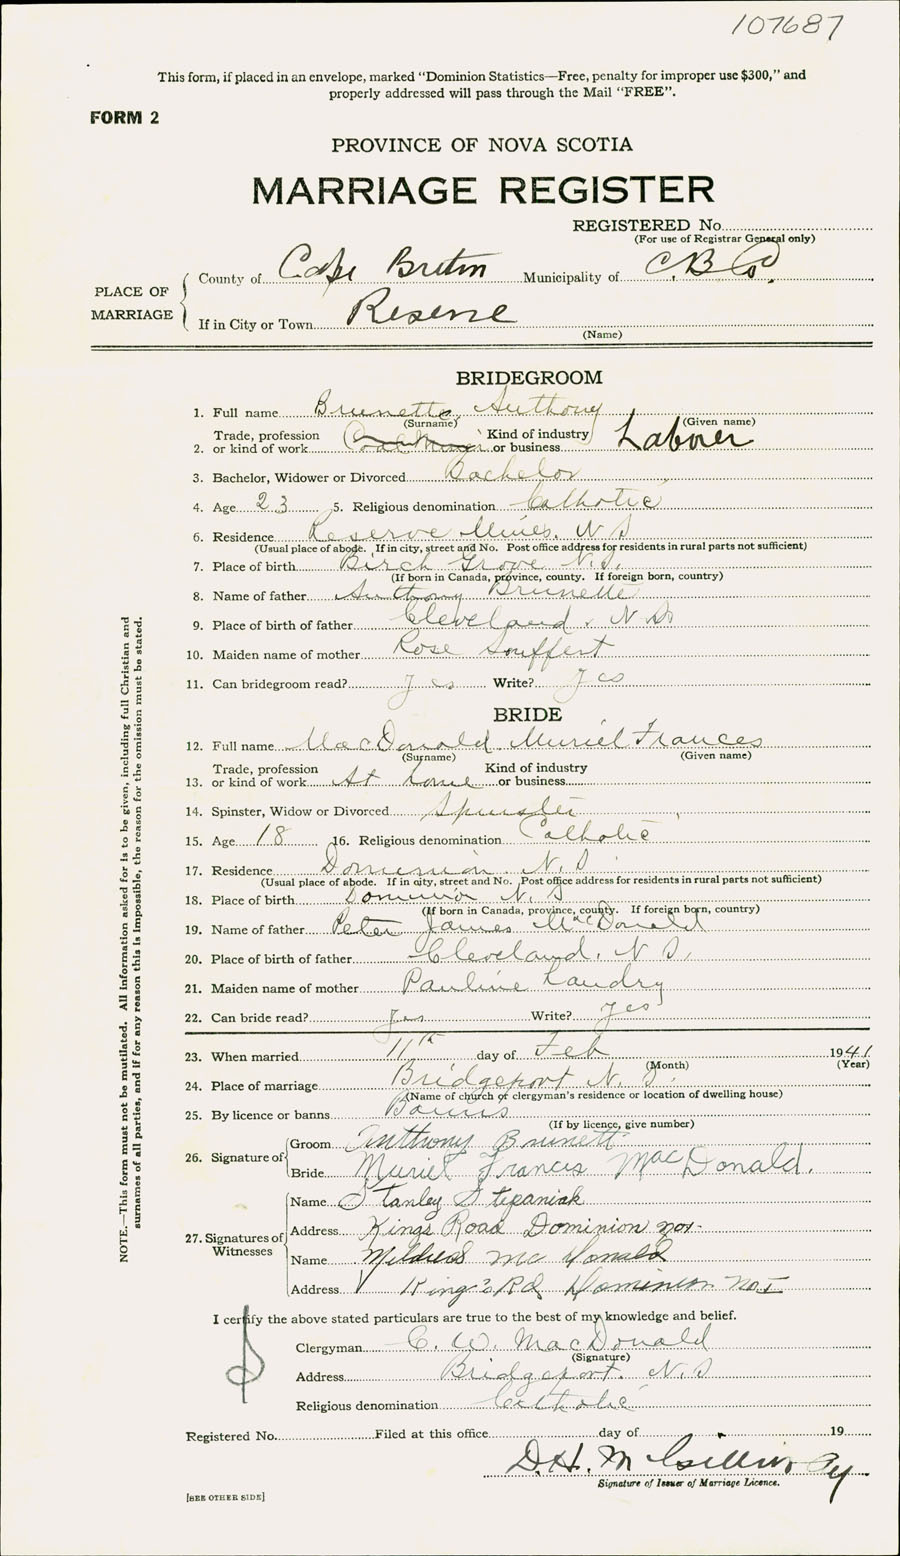 107687
This form, if placed in an envelope, marked "Dominion Statistics—Free, penalty for improper use $300," and
properly addressed will pass through the Mail "FREE".
FORM 2
PROVINCE OF NOVA SCOTIA
MARRIAGE REGISTER
REGISTERED No.
(For use of Registrar General only)
PLACE OF MARRIAGE
County of Cape Breton Municipality of C. B. Co.
If in City or Town Reserve
(Name)
BRIDEGROOM
1. Full name Brunette, Anthony
(Surname) (Given name)
2. Trade, profession or kind of work Coal Miner Kind of industry or business Laborer
3. Bachelor, Widower or Divorced Bachelor
4. Age 23 5. Religious denomination Catholic
6. Residence Reserve Mines, N S
(Usual place of abode. If in city, street and No. Post office address for residents in rural parts not sufficient)
7. Place of birth Birch Grove N.S.
(If born in Canada, province, county. If foreign born, country)
8. Name of father Anthony Brunette
9. Place of birth of father Cleveland, N.S.
10. Maiden name of mother Rose
11. Can bridegroom read? yes Write? yes
BRIDE
12. Full name MacDonald Muriel Frances
(Surname) (Given name)
13. Trade, profession or kind of work At home Kind of industry or business
14. Spinster, Widow or Divorced Spinster
15. Age 18 16. Religious denomination Catholic
17. Residence Dominion N.S
(Usual place of abode. If in city, street and No. Post office address for residents in rural parts not sufficient)
18. Place of birth Dominion N. S
(If born in Canada, province, county. If foreign born, country)
19. Name of father Peter James MacDonald
20. Place of birth of father Cleveland, N S,
21. Maiden name of mother Pauline Landry
22. Can bride read? yes Write? yes
23. When married 11th day of Feb 1941
(Month) (Year)
24. Place of marriage Bridgeport N. S.
(Name of church or clergyman's residence or location of dwelling house)
25. By licence or banns Banns
(If by licence, give number)
26. Signature of
Groom Anthony Brunett
Bride Muriel Francis MacDonald.
27. Signatures of Witnesses
Name Stanley Stepaniak
Address Kings Road Dominion no1
Name Mildred Mc Donald
Address King's Rd Dominion No.I
I certify the above stated particulars are true to the best of my knowledge and belief.
Clergyman C. W. MacDonald
(Signature)
Address Bridgeport. N.S
Religious denomination Catholic
Registered No. Filed at this office day of 19
D.H. McGillivray
Signature of Issuer of Marriage Licence.
[SEE OTHER SIDE]
NOTE.—This form must not be mutilated. All information asked for is to be given, including full Christian and
surnames of all parties, and if for any reason this is impossible, the reason for the omission must be stated.